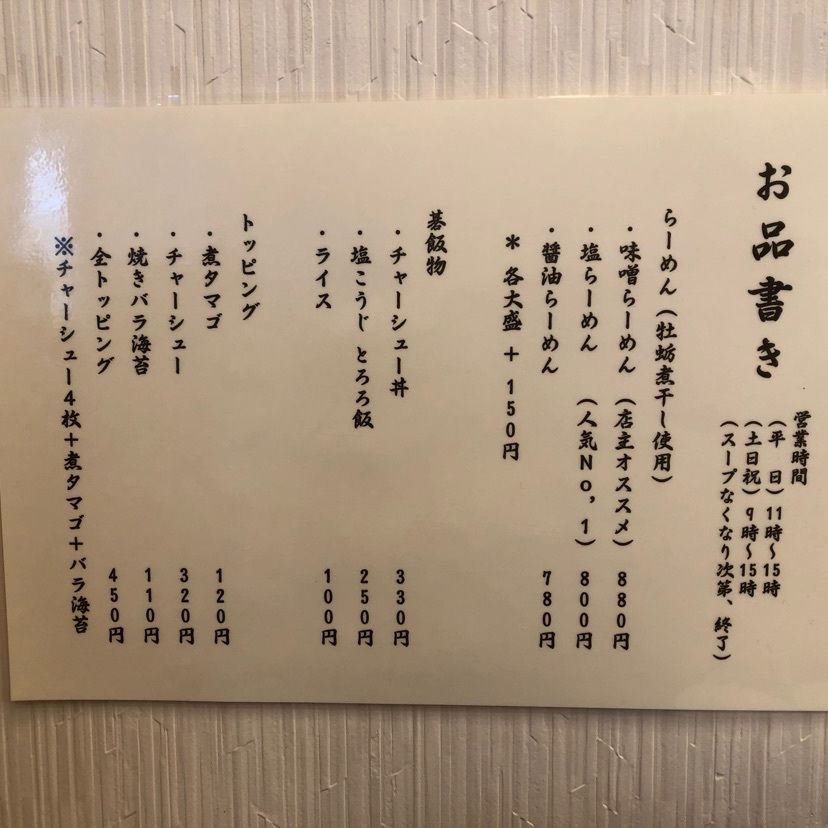 お品書き
営業時間
(平　日)11時～15時
(土日祝)9時～15時
(スープなくなり次第、終了)
らーめん(牡蛎煮干し使用)
・味噌らーめん (店主オススメ) 880円
・塩らーめん (人気No,1) 800円
・醤油らーめん 780円
＊ 各大盛 + 150円
碁飯物
・チャーシュー丼 330円
・塩こうじ とろろ飯 250円
・ライス 100円
トッピング
・煮タマゴ 120円
・チャーシュー 320円
・焼きバラ海苔 110円
・全トッピング 450円
※チャーシュー4枚+煮タマゴ+バラ海苔